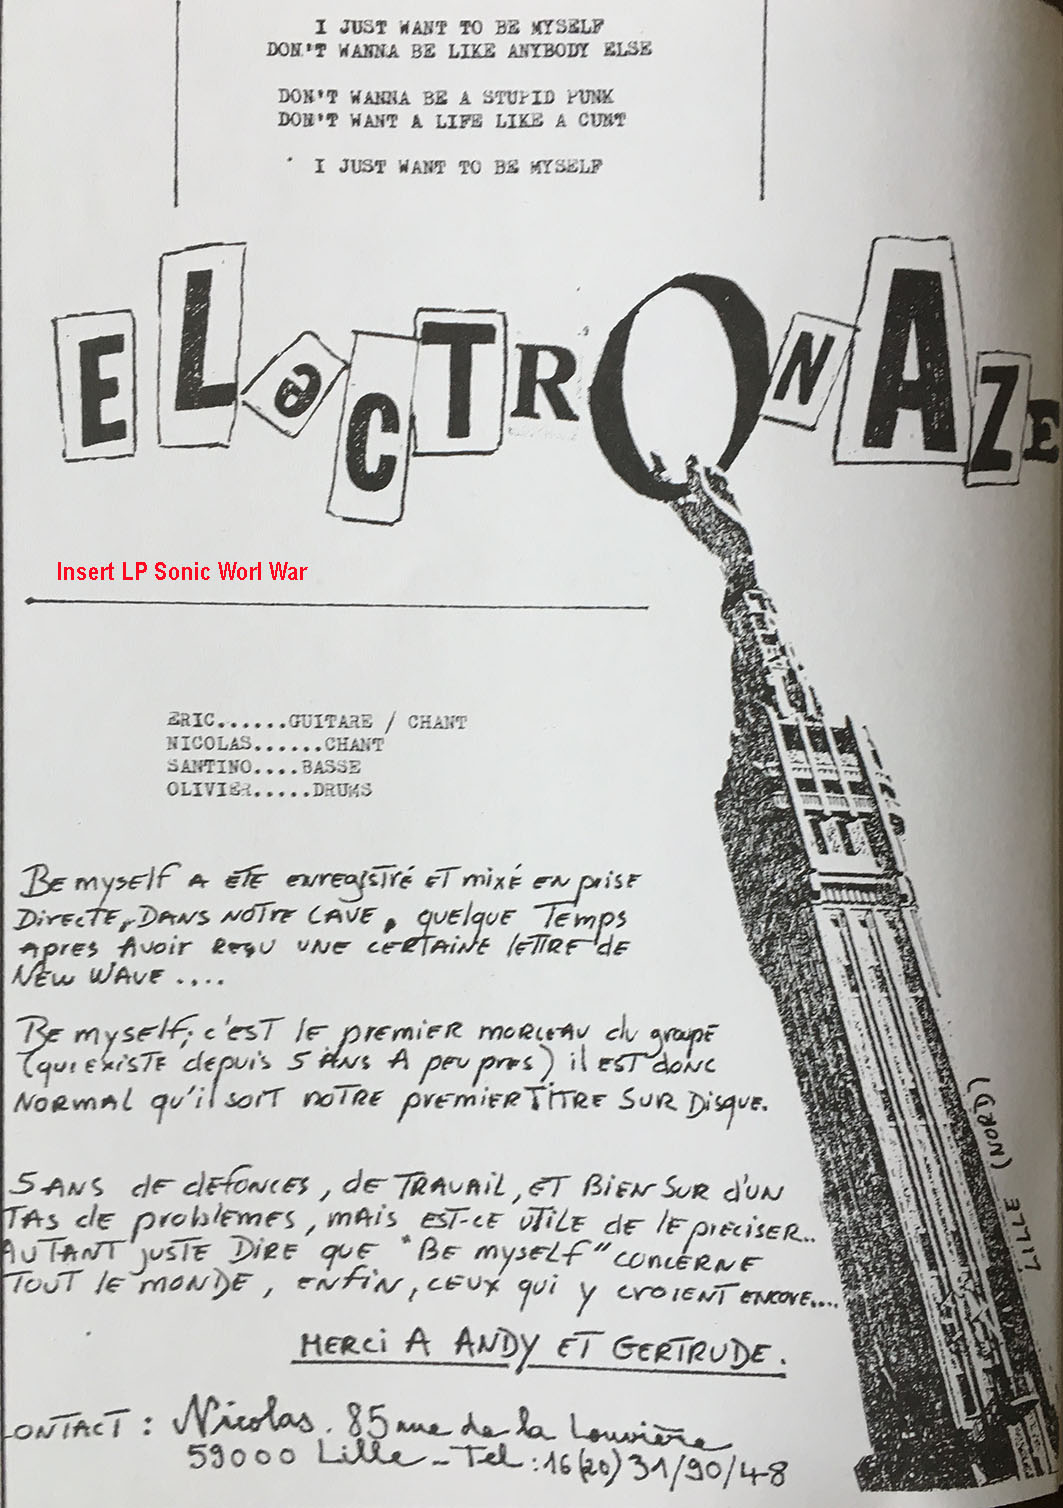 I JUST WANT TO BE MYSELF
DON'T WANNA BE LIKE ANYBODY ELSE
DON'T WANNA BE A STUPID PUNK
DON'T WANT A LIFE LIKE A CUNT
I JUST WANT TO BE MYSELF
ELeCTRONAZE
Insert LP Sonic Worl War
ERIC......GUITARE / CHANT
NICOLAS......CHANT
SANTINO....BASSE
OLIVIER.....DRUMS
Be myself A ETE enregistré ET mixé EN prise
Directe, DANS NOTRE CAVE, quelque Temps
Apres Avoir reçu UNE CERTAINE lETTRE de
NEW WAVE ....
Be myself; c'est le premier morceau du groupe
(qui existe depuis 5 ANS A peu pres) il EST donc
NORMAL qu'il soit notre premier TITRE SUR Disque.
5 ANS de defonces, de TRAVAIL, ET BIEN SUR d'UN
TAS de problemes, mais EST-CE UTILE DE le preciser..
AUTANT juste DIRE que "Be myself" concerne
TOUT le MONDE, ENFIN, CEUX qui y croient encore....
MERCI A ANDY ET GERTRUDE.
CONTACT : Nicolas. 85 rue de la Louvière
59000 Lille - Tel : 16(20) 31/90/48
LILLE (NORD)